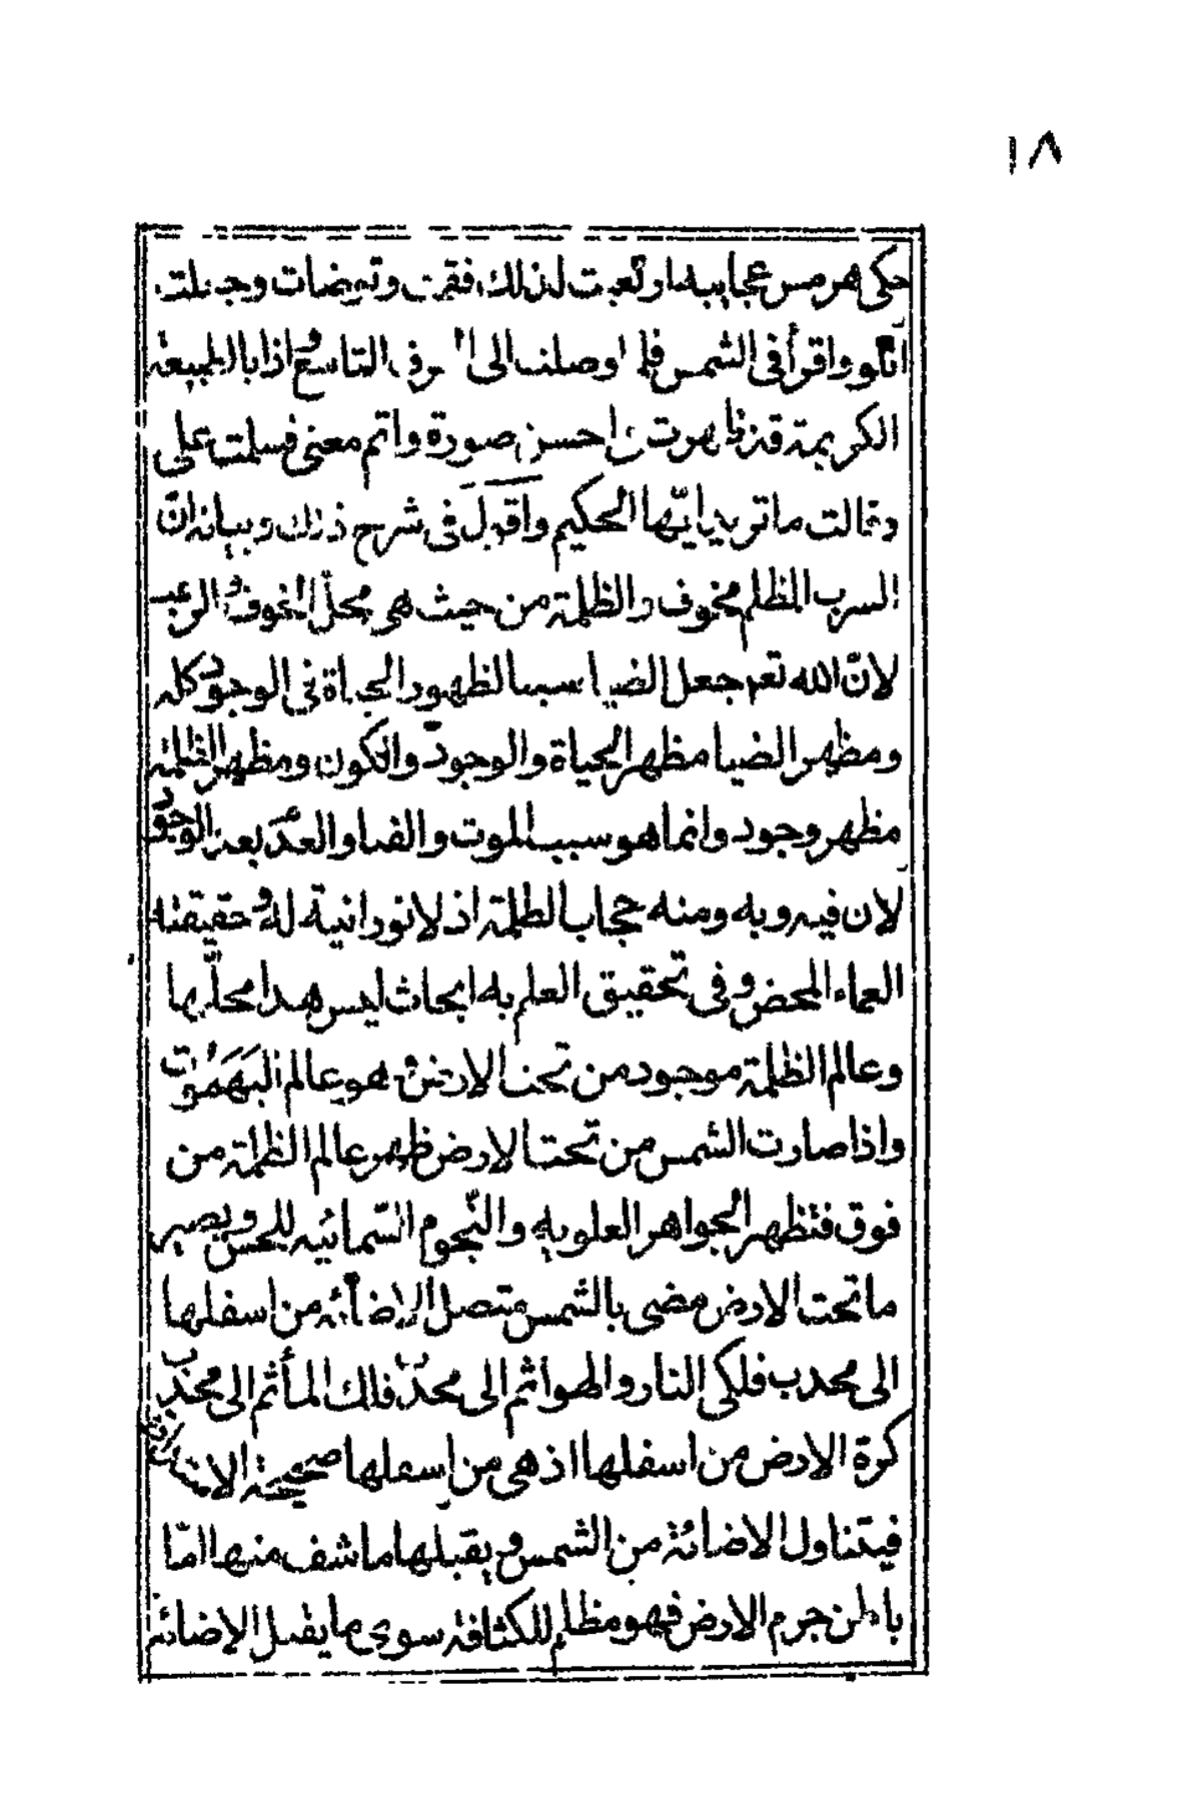 ١٨
حكى هرمس عجايبه وتعبت لذلك فقمت وتوضات وجعلت
اتلو واقرأ فى الشمس فلما وصلت الى الحرف التاسع واذا بالطبيعة
الكريمة قد ظهرت فى احسن صورة واتم معنى فسلمت على
وقالت ما تريد يا ايّها الحكيم وأقول فى شرح ذلك وبيانه انّ
السرب المظلم مخوف والظلمة من حيث هى محلّ الخوف والرعب
لانّ الله تعم جعل الضيا سببا لظهور الحياة فى الوجود كله
ومظهر الضيا مظهر الحياة والوجود والكون ومظهر الظلمة
مظهر وجود وانما هو سبب الموت والفنا والعدم بعد الوجود
لان فيه وبه ومنه حجاب الظلمة اذ لا نورانية له وحقيقته
العماء المحض وفى تحقيق العلم به ابحاث ليس هدا محلّها
وعالم الظلمة موجود من تحت الارض وهو عالم البَهَمُوت
واذا صارت الشمس من تحت الارض ظهر عالم الظلمة من
فوق فتظهر الجواهر العلويه والنّجوم السّمائيه للحس ويصير
ما تحت الارض مضى بالشمس متصل الاضأئه من اسفلها
الى محدب فلكى النار والهوا ثم الى محدّب فلك المأ ثم الى محدّب
كرة الارض من اسفلها اذ هى من اسفلها صحيحة
فيتناول الاضائة من الشمس ويقبلها ما شف منها امّا
باطن جرم الارض فهو مظلم للكثافة سوى ما يقبل الاضائة